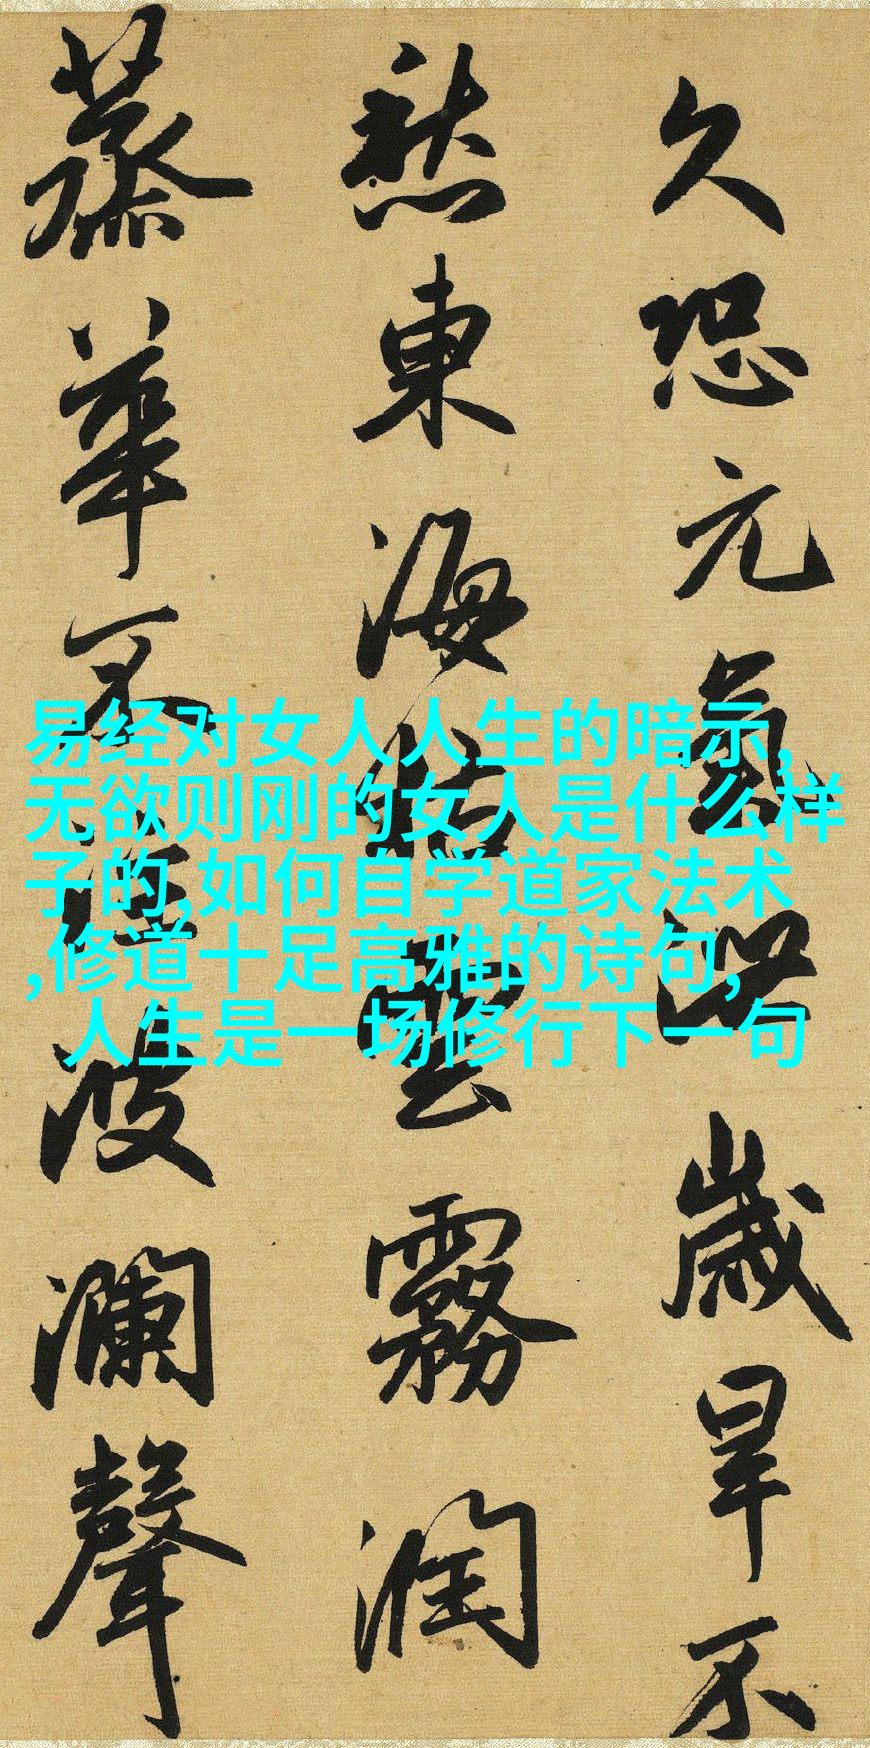 久恐元氣泄歲旱不
愁東海枯雲霧潤
蒸華不注波瀾聲
易经对女人人生的暗示,
无欲则刚的女人是什么样
子的,如何自学道家法术
,修道十足高雅的诗句,
人生是一场修行下一句